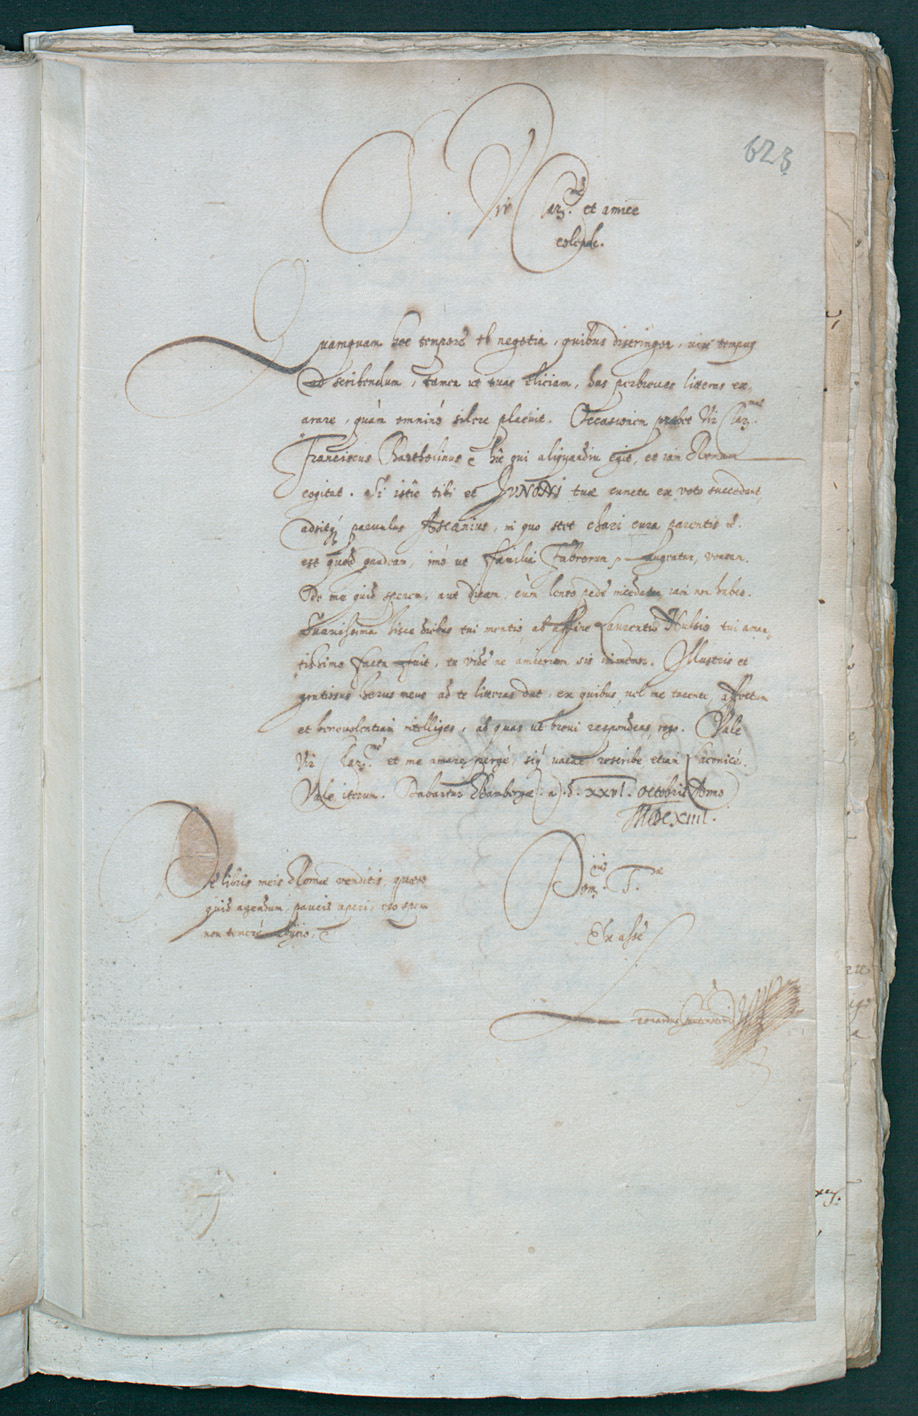 623
Vir Clar.me et amice
colende.
Quamquam hoc tempore ob negotia, quibus distringor, vix tempus
ad scribendum, tamen ut tuas eliciam, has perbreves litteras ex,
arare, quàm omninò silere placuit. Occasionem praebet Vir Clar.mus
Franciscus Bartholinus hîc qui aliquandiu egit, et iam Romam
cogitat. Si istîc tibi et JUNONI tuae cuncta ex voto succedunt,
adsitq parvulus Ascanius, in quo stet chari cura parentis
est quod gaudeam, imò ut familia Fabrorum augeatur, voveam.
De me quid sperem, aut dicam, cùm lento pede incedam, iam non habeo.
Suavissima hisce diebus tui mentio ab affine Laurentio Hulsio tui aman,
tissimo facta fuit, tu vide ne amicorum sis immemor. Illustris et
gentissus herus meus ad te litteras dat, ex quibus, vel me tacente, affectum
et benevolentiam intelliges, ad quas ut brevi respondeas, rogo. Vale
Vir Clar.me et me amare perge, siq vacat rescribe etiam Laconicè.
Vale iterum. Dabantur Bambergae a. d. XXVI. Octobris Anno
MDCXIIII.
De libris meis Romae venditis, quaeso
quid agendum, paucis aperi, ego spem
non temerè abijcio,
Exc.ae Dom. T.ae
Ex asse